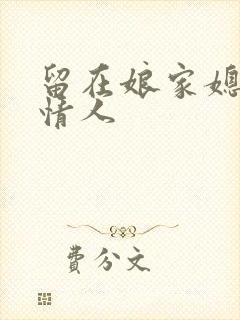 留在娘家媳
情人
费分文